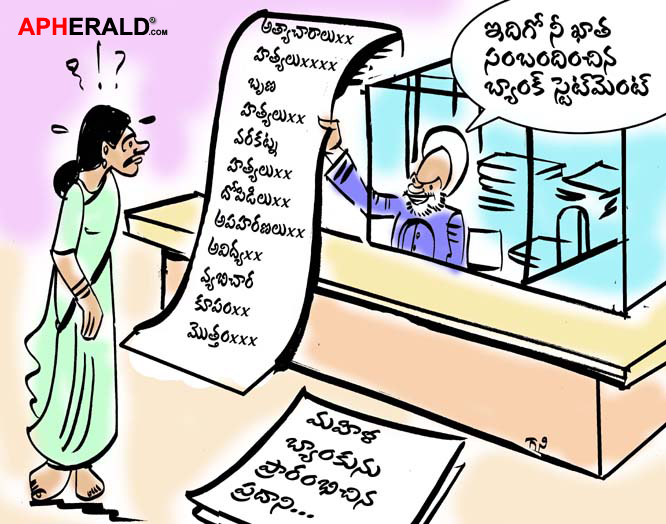 APHERALD.com
ఇదిగో నీ ఖాత
సంబందించిన
బ్యాంక్ స్టెట్‌మెంట్
అత్యాచారాలుxx
హత్యలుxxxx
బృణ
హత్యలుxx
వరకట్న
హత్యలుxx
దోపిడిలు
అపహరణలుxx
అవిద్యxx
వ్యభిచార
కూపంxx
మొత్తంxxx
మహిళ
బ్యాంకును
ప్రారంభించిన
ప్రదాని...